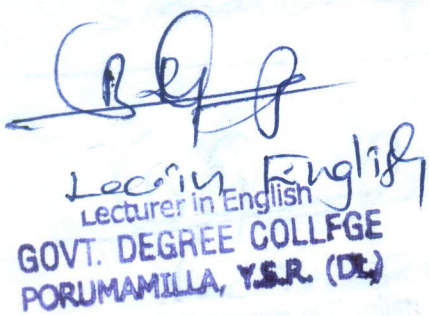 Lec. in English
Lecturer in English
GOVT. DEGREE COLLFGE
PORUMAMILLA, Y.S.R. (Dt.)